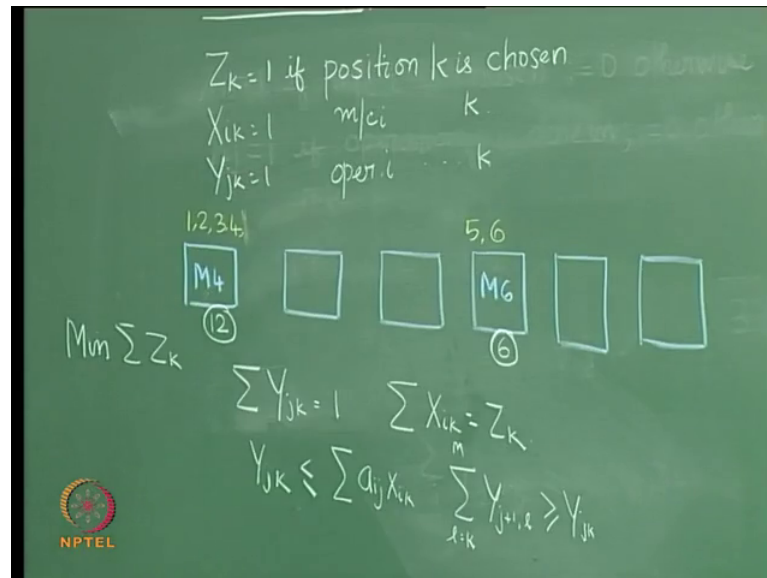 Zk=1 if position k is chosen =0 otherwise
Xik=1 m/c i k.
Yjk=1 oper. i .. .. k
1,2,3,4, 5,6
M4 M6
12 6
Min ∑ Zk
∑ Yjk = 1 ∑ Xik = Zk
Yjk ≤ ∑ aij Xik m ∑ l=k Yj+1,l ≥ Yjk
NPTEL